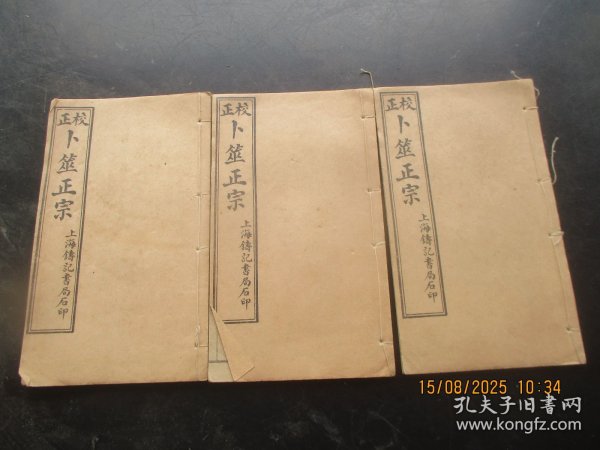 校正
卜筮正宗
上海鑄記書局石印
校正
卜筮正宗
上海鑄記書局石印
校正
卜筮正宗
上海鑄記書局石印
15/08/2025 10:34
孔夫子旧书网
www.kongfz.com